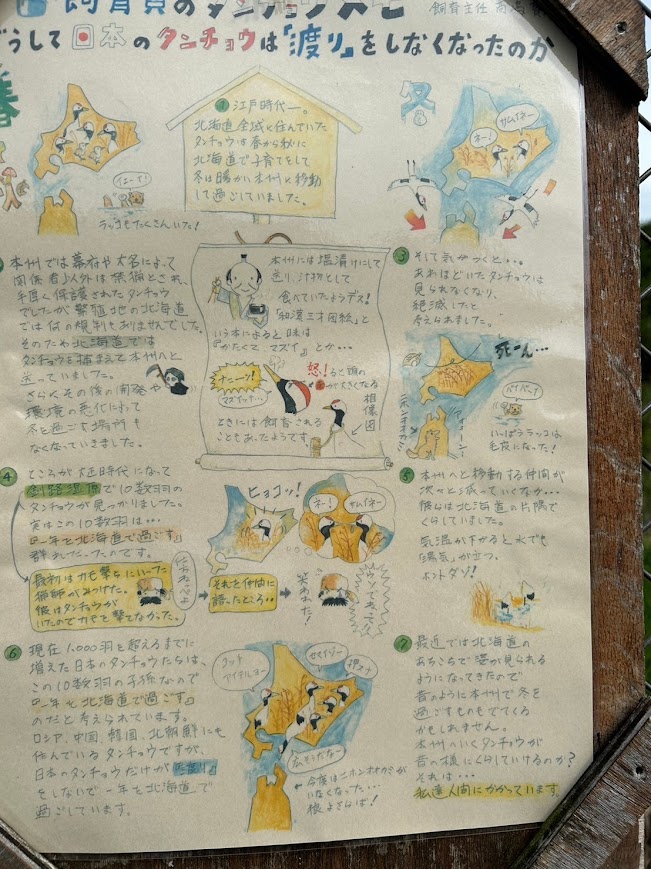 飼育員のタンチョウ
飼育主任
どうして日本のタンチョウは「渡り」をしなくなったのか
春
1 江戸時代―。
北海道全域に住んでいた
タンチョウは春から秋に
北海道で子育てをして
冬は暖かい本州に移動
して過ごしていました。
イエーイ!
ラッコもたくさんいた!
冬
ネー!
サムイネー
本州では幕府や大名によって
関係者以外は禁猟とされ、
手厚く保護されたタンチョウ
でしたが繁殖地の北海道
では何の規制もありませんでした。
そのため北海道では
タンチョウを捕まえて本州へと
送っていました。
さらにその後の開発や
環境の悪化によって
冬を過ごす場所も
なくなっていきました。
本州には塩漬けにして
送り、汁物として
食べていたようデス!
「和漢三才図絵」と
いう本によると味は
『かたくて マズイ』とか…
ナニーッ!
マズイッテ…
怒!ると頭の
赤が大きくなる
想像図
ときには飼育される
こともあったようです
3 そして気がつくと…。
あれほどいたタンチョウは
見られなくなり、
絶滅したと
考えられました。
死ーん…
バイバーイ
いっぽうラッコは
毛皮になった!
4 ところが大正時代になって
釧路湿原で10数羽の
タンチョウが見つかりました。
実はこの10数羽は…
『一年を北海道で過ごす』
群れだったのです。
最初はカモ撃ちにいった
猟師がみつけた。
彼はタンチョウが
いたのでカモを撃てなかった。
ヒョコッ!
ネー!
サムイネー
それを仲間に
語ったところ…
笑われた!
ウソでねって!!
5 本州へと移動する仲間が
次々と減っていくなか…
彼らは北海道の片隅で
くらしていました。
気温が下がると水でも
「湯気」が立つ。
ホントダゾ!
6 現在1,000羽を超えるまでに
増えた日本のタンチョウたちは、
この10数羽の子孫なので
『一年を北海道で過ごす』
のだと考えられています。
ロシア、中国、韓国、北朝鮮にも
住んでいるタンチョウですが、
日本のタンチョウだけが『渡り』
をしないで一年を北海道で
過ごしています。
セマイゾー
押すナ
← 今度はニホンオオカミが
いなくなった…
狼よさらば!
7 最近では北海道の
あちこちで姿が見られる
ようになってきたので
昔のように本州で冬を
過ごすものもでてくる
かもしれません。
本州へいくタンチョウが
昔の様にくらしていけるのか?
それは…
私達人間にかかっています。